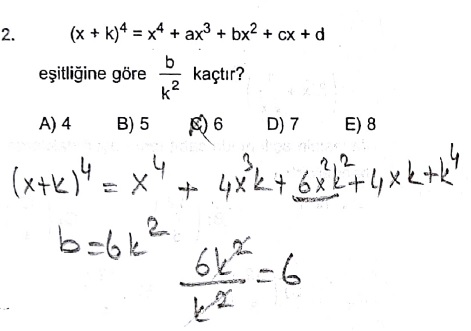 2. (x + k)⁴ = x⁴ + ax³ + bx² + cx + d
eşitliğine göre b/k² kaçtır?
A) 4 B) 5 C) 6 D) 7 E) 8
(x+k)⁴ = x⁴ + 4x³k + 6x²k² + 4xk + k⁴
b=6k²
6k²/k² = 6